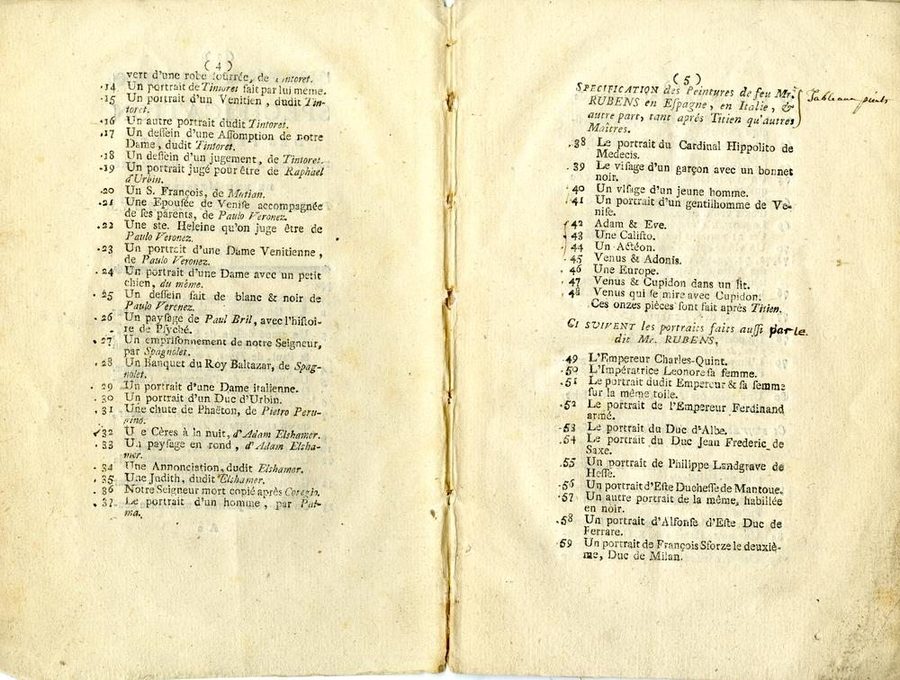 ( 4 )
vert d'une robe fourrée, de Tintoret.
.14 Un portrait de Tintoret fait par lui meme.
.15 Un portrait d'un Venitien, dudit Tin-
toret.
.16 Un autre portrait dudit Tintoret.
.17 Un dessein d'une Assomption de notre
Dame, dudit Tintoret.
.18 Un dessein d'un jugement, de Tintoret.
.19 Un portrait jugé pour être de Raphael
d'Urbin.
.20 Un S. François, de Mutian.
.21 Une Epousée de Venise accompagnée
de ses parents, de Paulo Veronez.
.22 Une ste. Heleine qu'on juge être de
Paulo Veronez.
.23 Un portrait d'une Dame Venitienne,
de Paulo Veronez.
.24 Un portrait d'une Dame avec un petit
chien, du même.
.25 Un dessein fait de blanc & noir de
Paulo Verenez.
.26 Un paysage de Paul Bril, avec l'histoi-
re de Psyché.
.27 Un emprisonnement de notre Seigneur,
par Spagnolet.
.28 Un Banquet du Roy Baltazar, de Spag-
nolet.
.29 Un portrait d'une Dame italienne.
.30 Un portrait d'un Duc d'Urbin.
.31 Une chute de Phaëton, de Pietro Peru-
gino.
32 U e Cères à la nuit, d'Adam Elshamer.
.33 Un paysage en rond, d'Adam Elsha-
mer.
.34 Une Annonciation, dudit Elshamer.
.35 Une Judith, dudit Elshamer.
.36 Notre Seigneur mort copié après Coregio.
.37 Le portrait d'un homme, par Pal-
ma.
( 5 )
SPECIFICATION des Peintures de feu Mr.
RUBENS en Espagne, en Italie, &
autre part, tant après Titien qu'autres
Maîtres.
Tableaux peints
.38 Le portrait du Cardinal Hippolito de
Medecis.
.39 Le visage d'un garçon avec un bonnet
noir.
.40 Un visage d'un jeune homme.
.41 Un portrait d'un gentilhomme de Ve-
nise.
.42 Adam & Eve.
.43 Une Calisto.
.44 Un Actéon.
.45 Venus & Adonis.
.46 Une Europe.
.47 Venus & Cupidon dans un lit.
.48 Venus qui se mire avec Cupidon.
Ces onzes pièces sont fait après Titien.
CI SUIVENT les portraits faits aussi par le
dit Mr. RUBENS.
.49 L'Empereur Charles-Quint.
.50 L'Impératrice Leonore sa femme.
.51 Le portrait dudit Empereur & sa femme
sur la même toile.
.52 Le portrait de l'Empereur Ferdinand
armé.
.53 Le portrait du Duc d'Albe.
.54 Le portrait du Duc Jean Frederic de
Saxe.
.55 Un portrait de Philippe Landgrave de
Hesse.
.56 Un portrait d'Este Duchesse de Mantoue.
.57 Un autre portrait de la même, habillée
en noir.
.58 Un portrait d'Alfonse d'Este Duc de
Ferrare.
.59 Un portrait de François Sforze le deuxiè-
me, Duc de Milan.